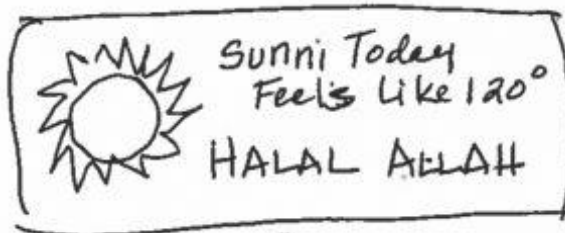 Sunni Today
Feels Like 120°
HALAL ALLAH